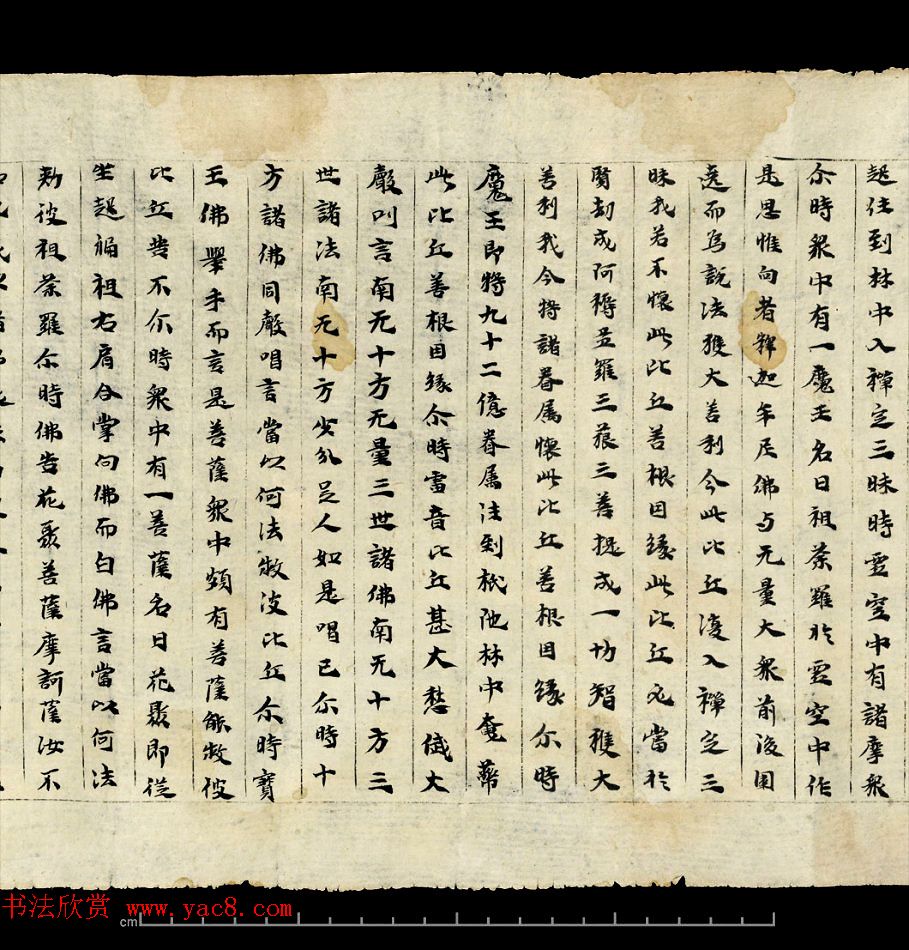 起住到林中入禪定三昧時虛空中有諸摩衆
尒時衆中有一魔王名曰祖荼羅於虛空中作
是思惟向者釋迦牟尼佛与无量大衆前後圍
遶而為說法獲大善利今此比丘復入禪定三
昧我若不懷此比丘善根因緣此比丘必當於
賢劫成阿耨三羅三藐三善提成一切智獲大
善利我今將諸眷属懷此比丘善根因緣尒時
魔王即將九十二億眷属往到祇陁林中奄蔕
此比丘善根因緣尒時雷音比丘甚大愁大
聲叫言南无十方无量三世諸佛南无十方三
世諸法南无十方少分足人如是唱已尒時十
方諸佛同聲唱言當以何法救汝比丘尒時寳
王佛舉手而言是善薩衆中頗有善薩能救彼
比丘患不尒時衆中有一善薩名曰花聚即從
坐起褊袒右肩合掌向佛而白佛言當以何法
勑彼祖荼羅尒時佛告花聚善薩摩訶薩汝不
书法欣赏 www.yac8.com
cm